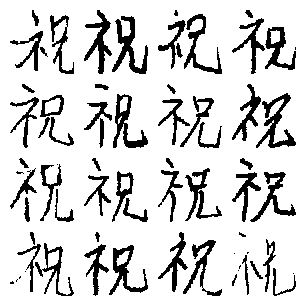 祝祝祝祝
祝祝祝祝
祝祝祝祝
祝祝祝祝